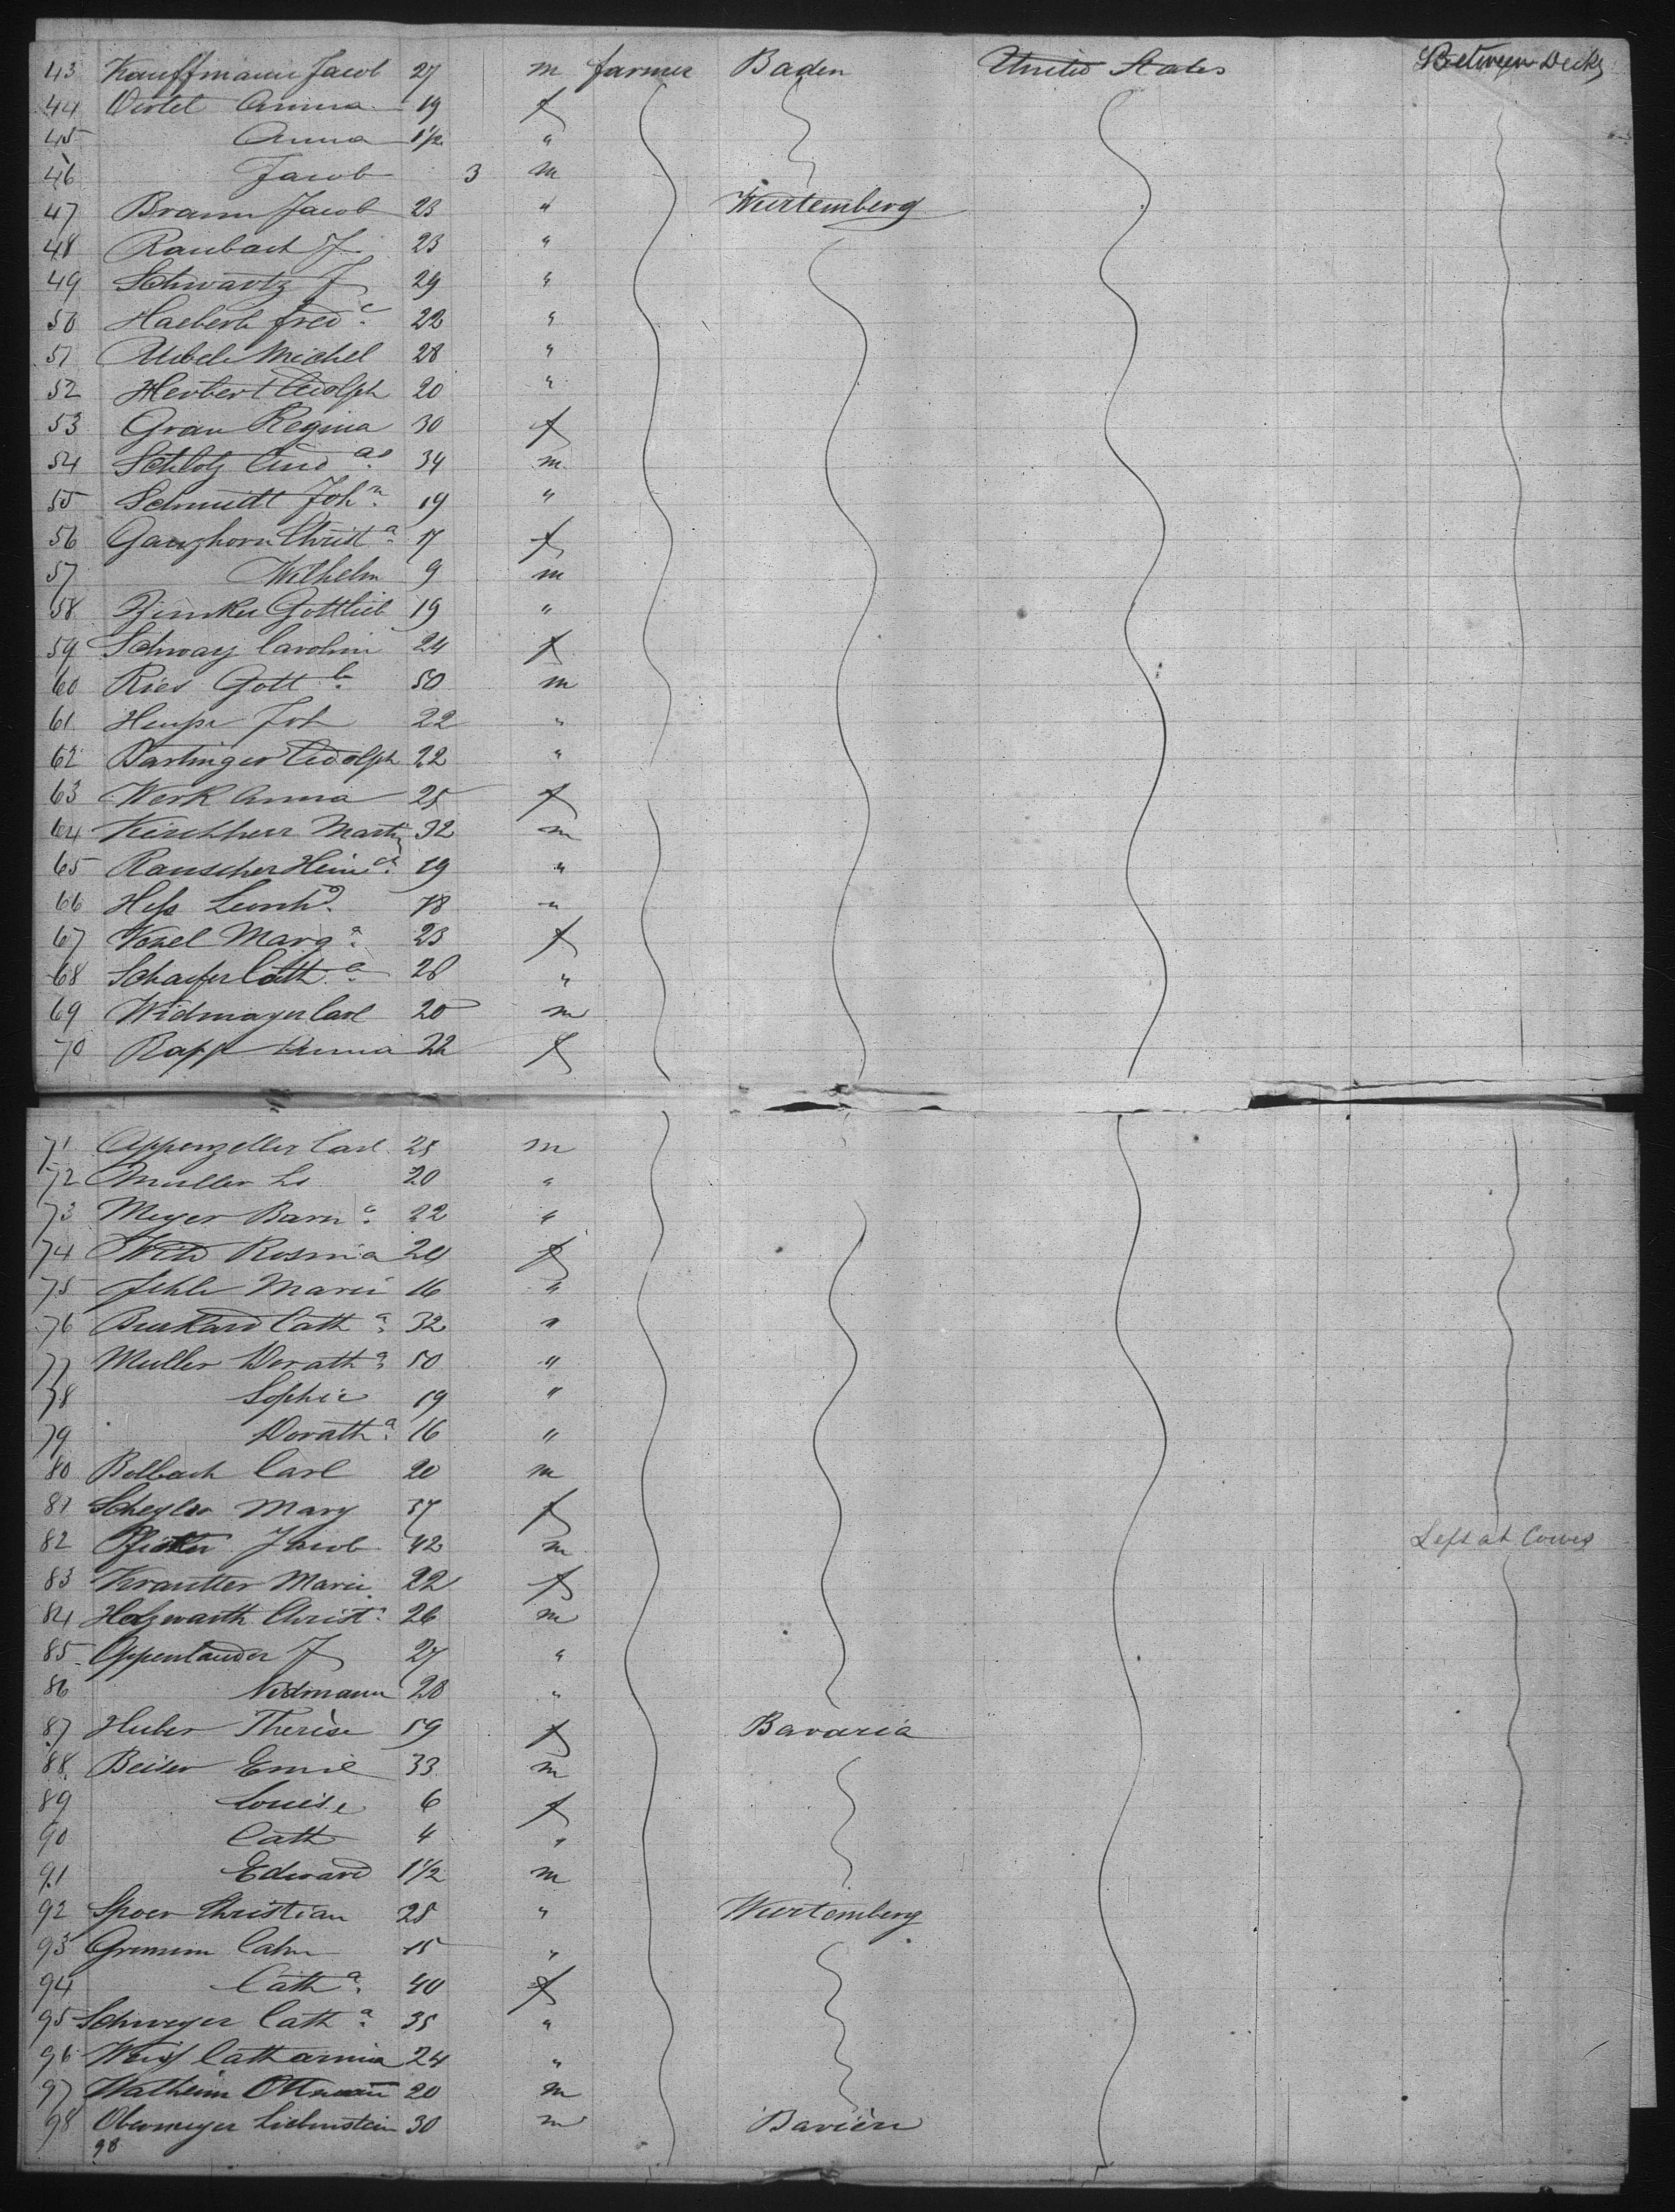 43 Kauffmann Jacob 27 m farmer Baden United States Between Decks
44 Oertel Anna 19 f
45 Anna 1 1/2 "
46 Jacob 3 m
47 Braun Jacob 23 " Wurtemberg
48 Raubach J 23 "
49 Schwartz J 29 "
50 Haeberle Fred c 22 "
51 Michel 28 "
52 Herbert Adolph 20 "
53 Grau Regina 30 f
54 Schlotz And as 34 m
55 Schmidt Joh n 19 "
56 Ganzhorn Christ a 17 f
57 Wilhelm 9 m
58 Gottlieb 19 "
59 Schwarz Carolin 24 f
60 Ries Gott b 50 m
61 Joh 22 "
62 Adolph 22 "
63 Werk Anna 25 f
64 Kirchherr Martin 32 m
65 Rauscher Hein ch 19 "
66 Hess Leonh d 18 "
67 Marg a 23 f
68 Schaefer Cath a 28 "
69 Widmayer Carl 20 m
70 Rapp Anna 22 f
71 Appenzeller Carl 25 m
72 Muller Ls 20 "
73 Meyer 22 "
74 Rosina 24 f
75 Jehle Marie 16 "
76 Burkard Cath a 32 "
77 Muller Dorath a 50 "
78 Sophie 19 "
79 Dorath a 16 "
80 Bolbach Carl 20 m
81 Mary 37 f
82 Jacob 42 m Left at Cowes
83 Krautter Marie 22 f
84 Holzwarth Christ 26 m
85 Oppenlander J 27 "
86 Widmann 28 "
87 Huber Therèse 59 f Bavaria
88 Beiser Emil 33 m
89 Louise 6 f
90 Cath 4 "
91 Edward 1 1/2 m
92 Spoer Christian 25 " Wurtemberg
93 15 "
94 Cath a 40 f
95 Schweyer Cath a 35 "
96 Catharina 24 "
97 20 m
98 Obermeyer Liebenstein 30 m
98